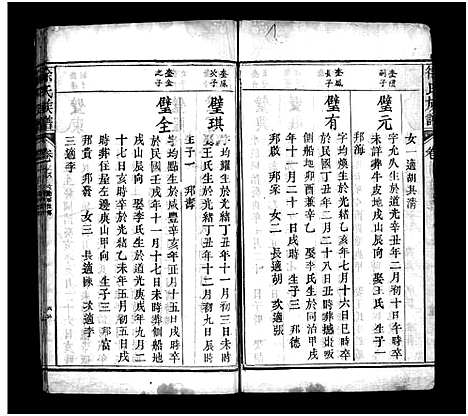 徐氏族譜
卷
女一 適胡其清
璧元
字允久生於道光辛丑年二月初十日午時卒
未詳葬牛皮地戌山辰向 娶王氏 生子一
邦海
璧有
字均煥生於光緒乙亥年七月十六日巳時卒
於民國丁丑年二月二十八日丑時葬
側船地卯酉兼辛乙 娶李氏生於同治甲戌
年十一月二十一日戌時 生子三 邦德
邦啟 邦家 女二 長適胡 次適張
璧琪
字均耀生於光緒丁丑年十一月初三日未時
娶王氏生於光緒丁丑年十二月初四日
生子一 邦壽
璧全
字均點生於咸豐辛亥年正月十五日戌時卒
於民國壬戌年十一月十七日未時葬側船地
戌山辰向 娶李氏生於道光庚戌年九月二
十七日亥時卒於光緒乙未年五月初五日戌
時葬住屋左邊庚山甲向 生子三 邦富
邦貴 邦發 女三 長適陳 次適李
三適李
徐氏族譜
卷